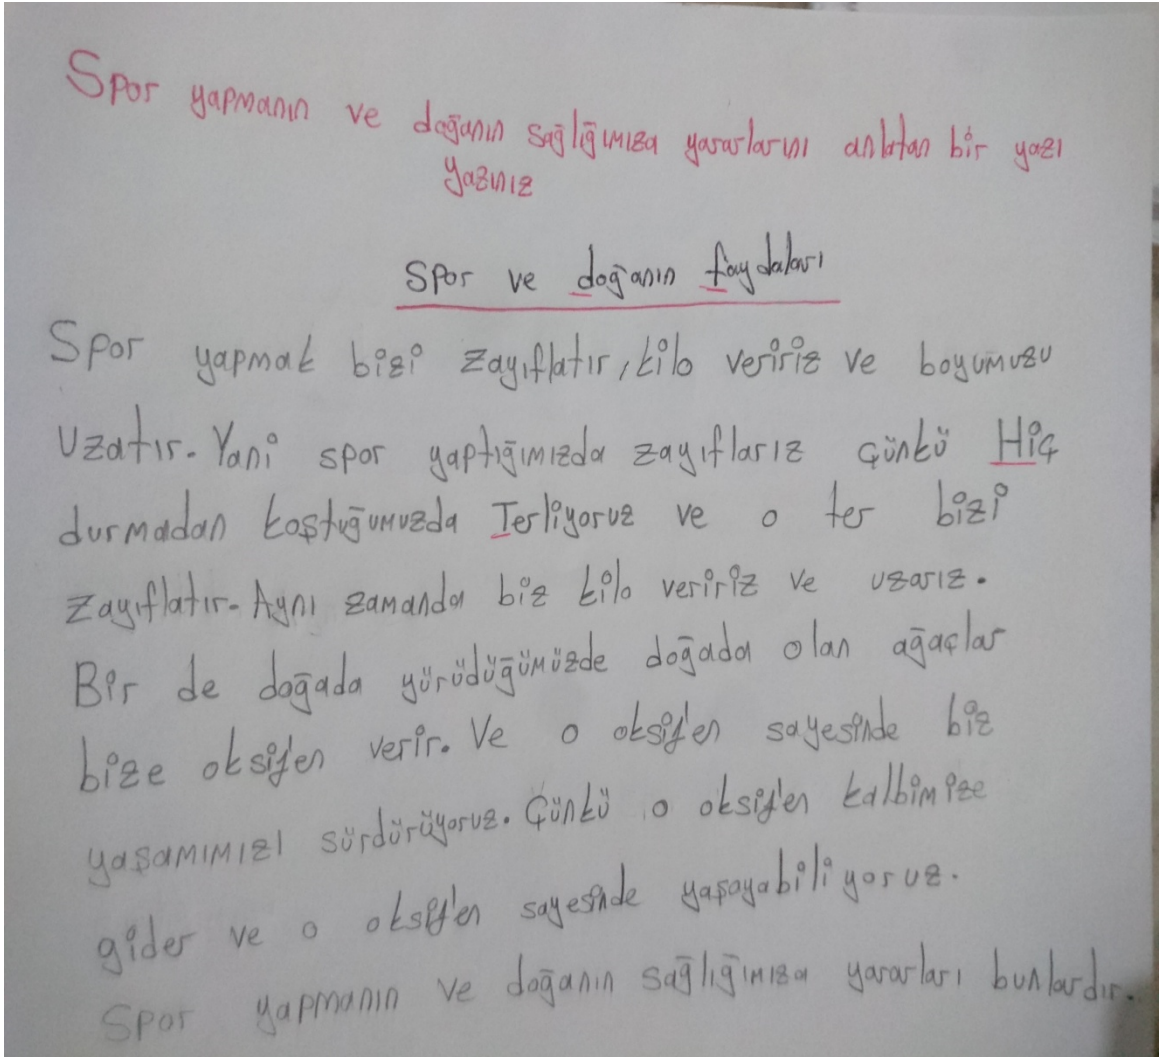 Spor yapmanın ve doğanın sağlığımıza yararlarını anlatan bir yazı
yazınız
Spor ve doğanın faydaları
Spor yapmak bizi zayıflatır, kilo veririz ve boyumuzu
uzatır. Yani spor yaptığımızda zayıflarız çünkü Hiç
durmadan koştuğumuzda Terliyoruz ve o ter bizi
zayıflatır. Aynı zamanda biz kilo veririz ve uzarız.
Bir de doğada yürüdüğümüzde doğada olan ağaçlar
bize oksijen verir. Ve o oksijen sayesinde biz
yaşamımızı sürdürüyoruz. Çünkü o oksijen kalbimize
gider ve o oksijen sayesinde yaşayabiliyoruz.
Spor yapmanın ve doğanın sağlığımıza yararları bunlardır.